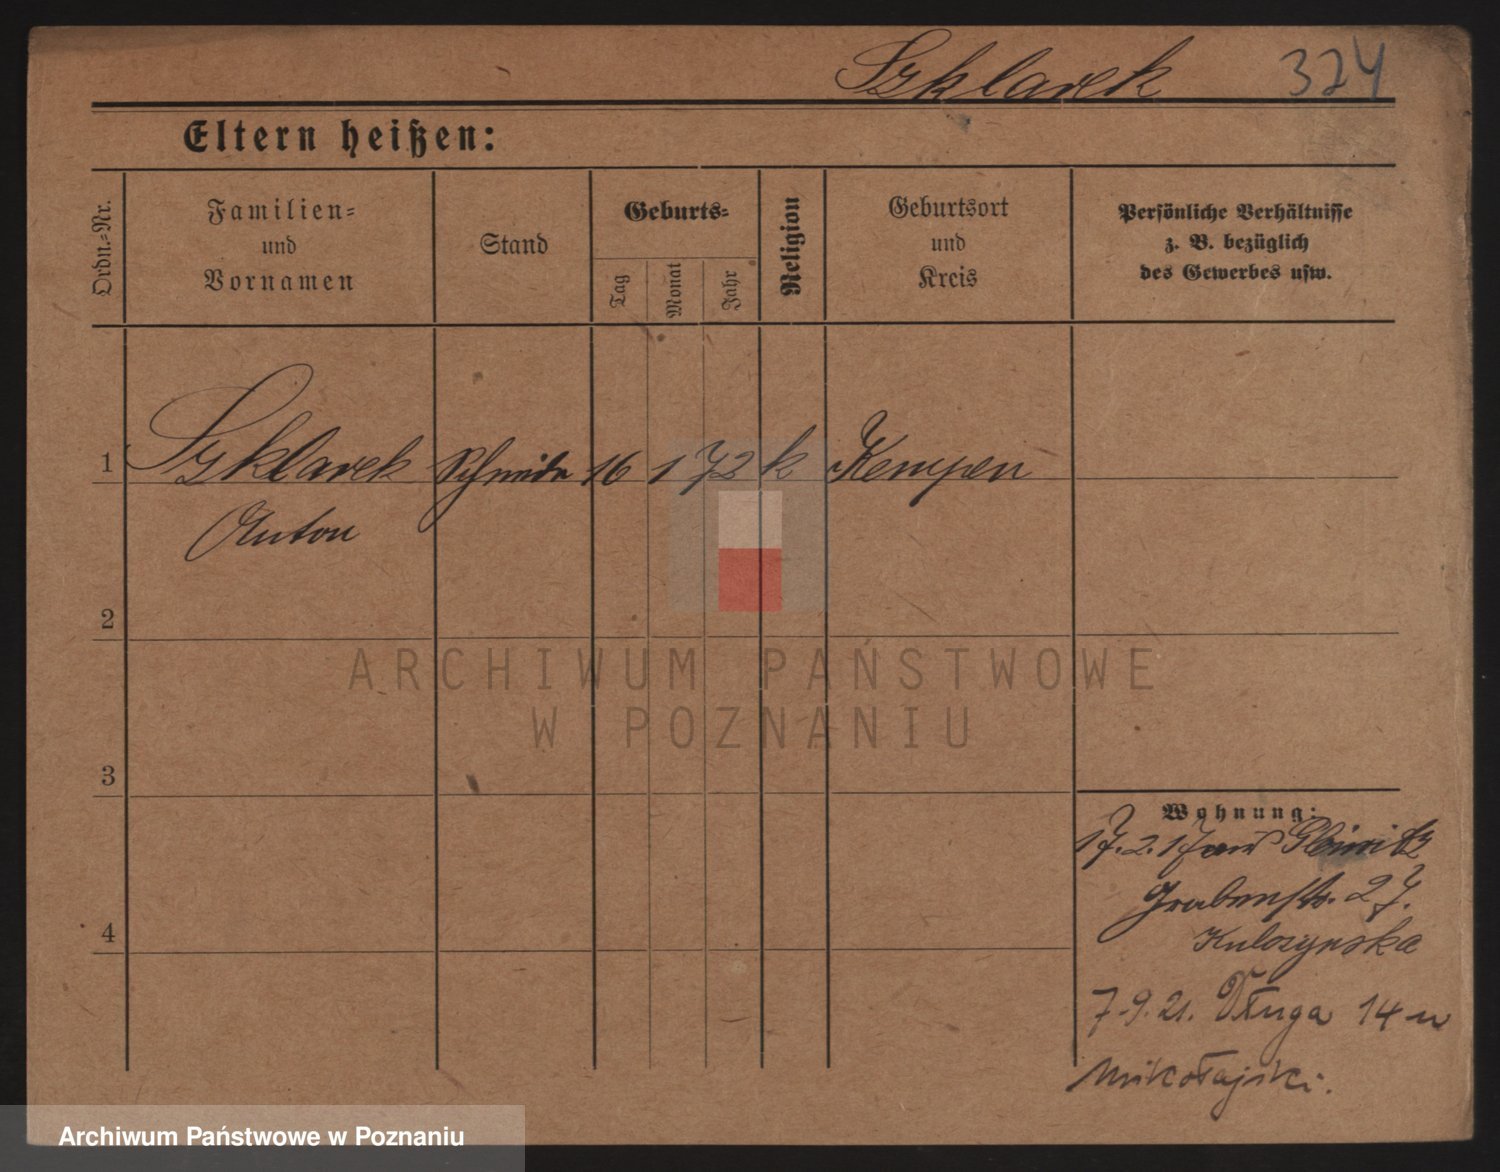 Szklarek 324
Eltern heißen:
Ordn.-Nr.
Familien-
und
Vornamen
Stand
Geburts-
Tag
Monat
Jahr
Religion
Geburtsort
und
Kreis
Persönliche Verhältnisse
z. B. bezüglich
des Gewerbes usw.
1 Szklarek Schneider 16 1 72 k Kempen
Anton
2
3
4
Wohnung:
17.2.17 aus Gleiwitz
Grabenstr. 27.
7.9.21. Długa 14
Mikołajski.
ARCHIWUM PAŃSTWOWE
W POZNANIU
Archiwum Państwowe w Poznaniu